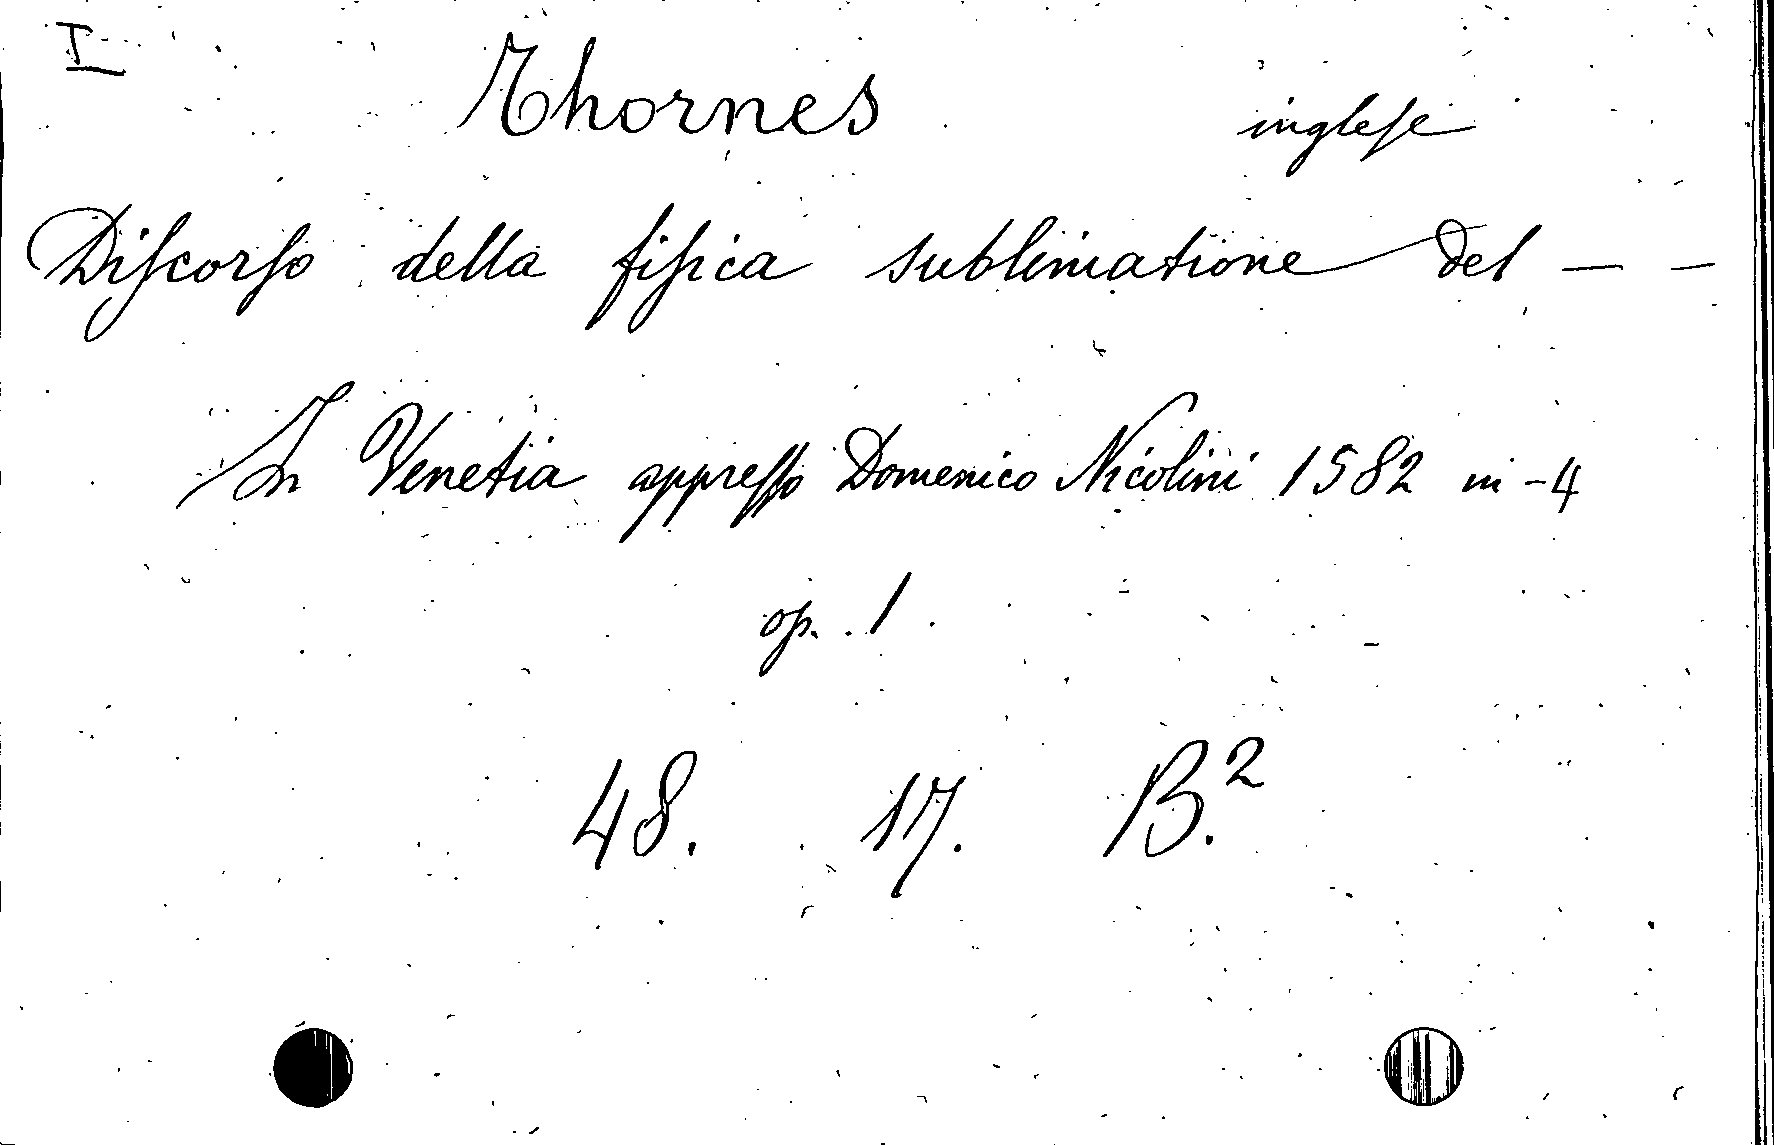 I
Thornes inglese
Discorso della fisica sublimatione del — —
In Venetia appresso Domenico Nicolini 1582 in-4
op. 1.
48. 17. B.²